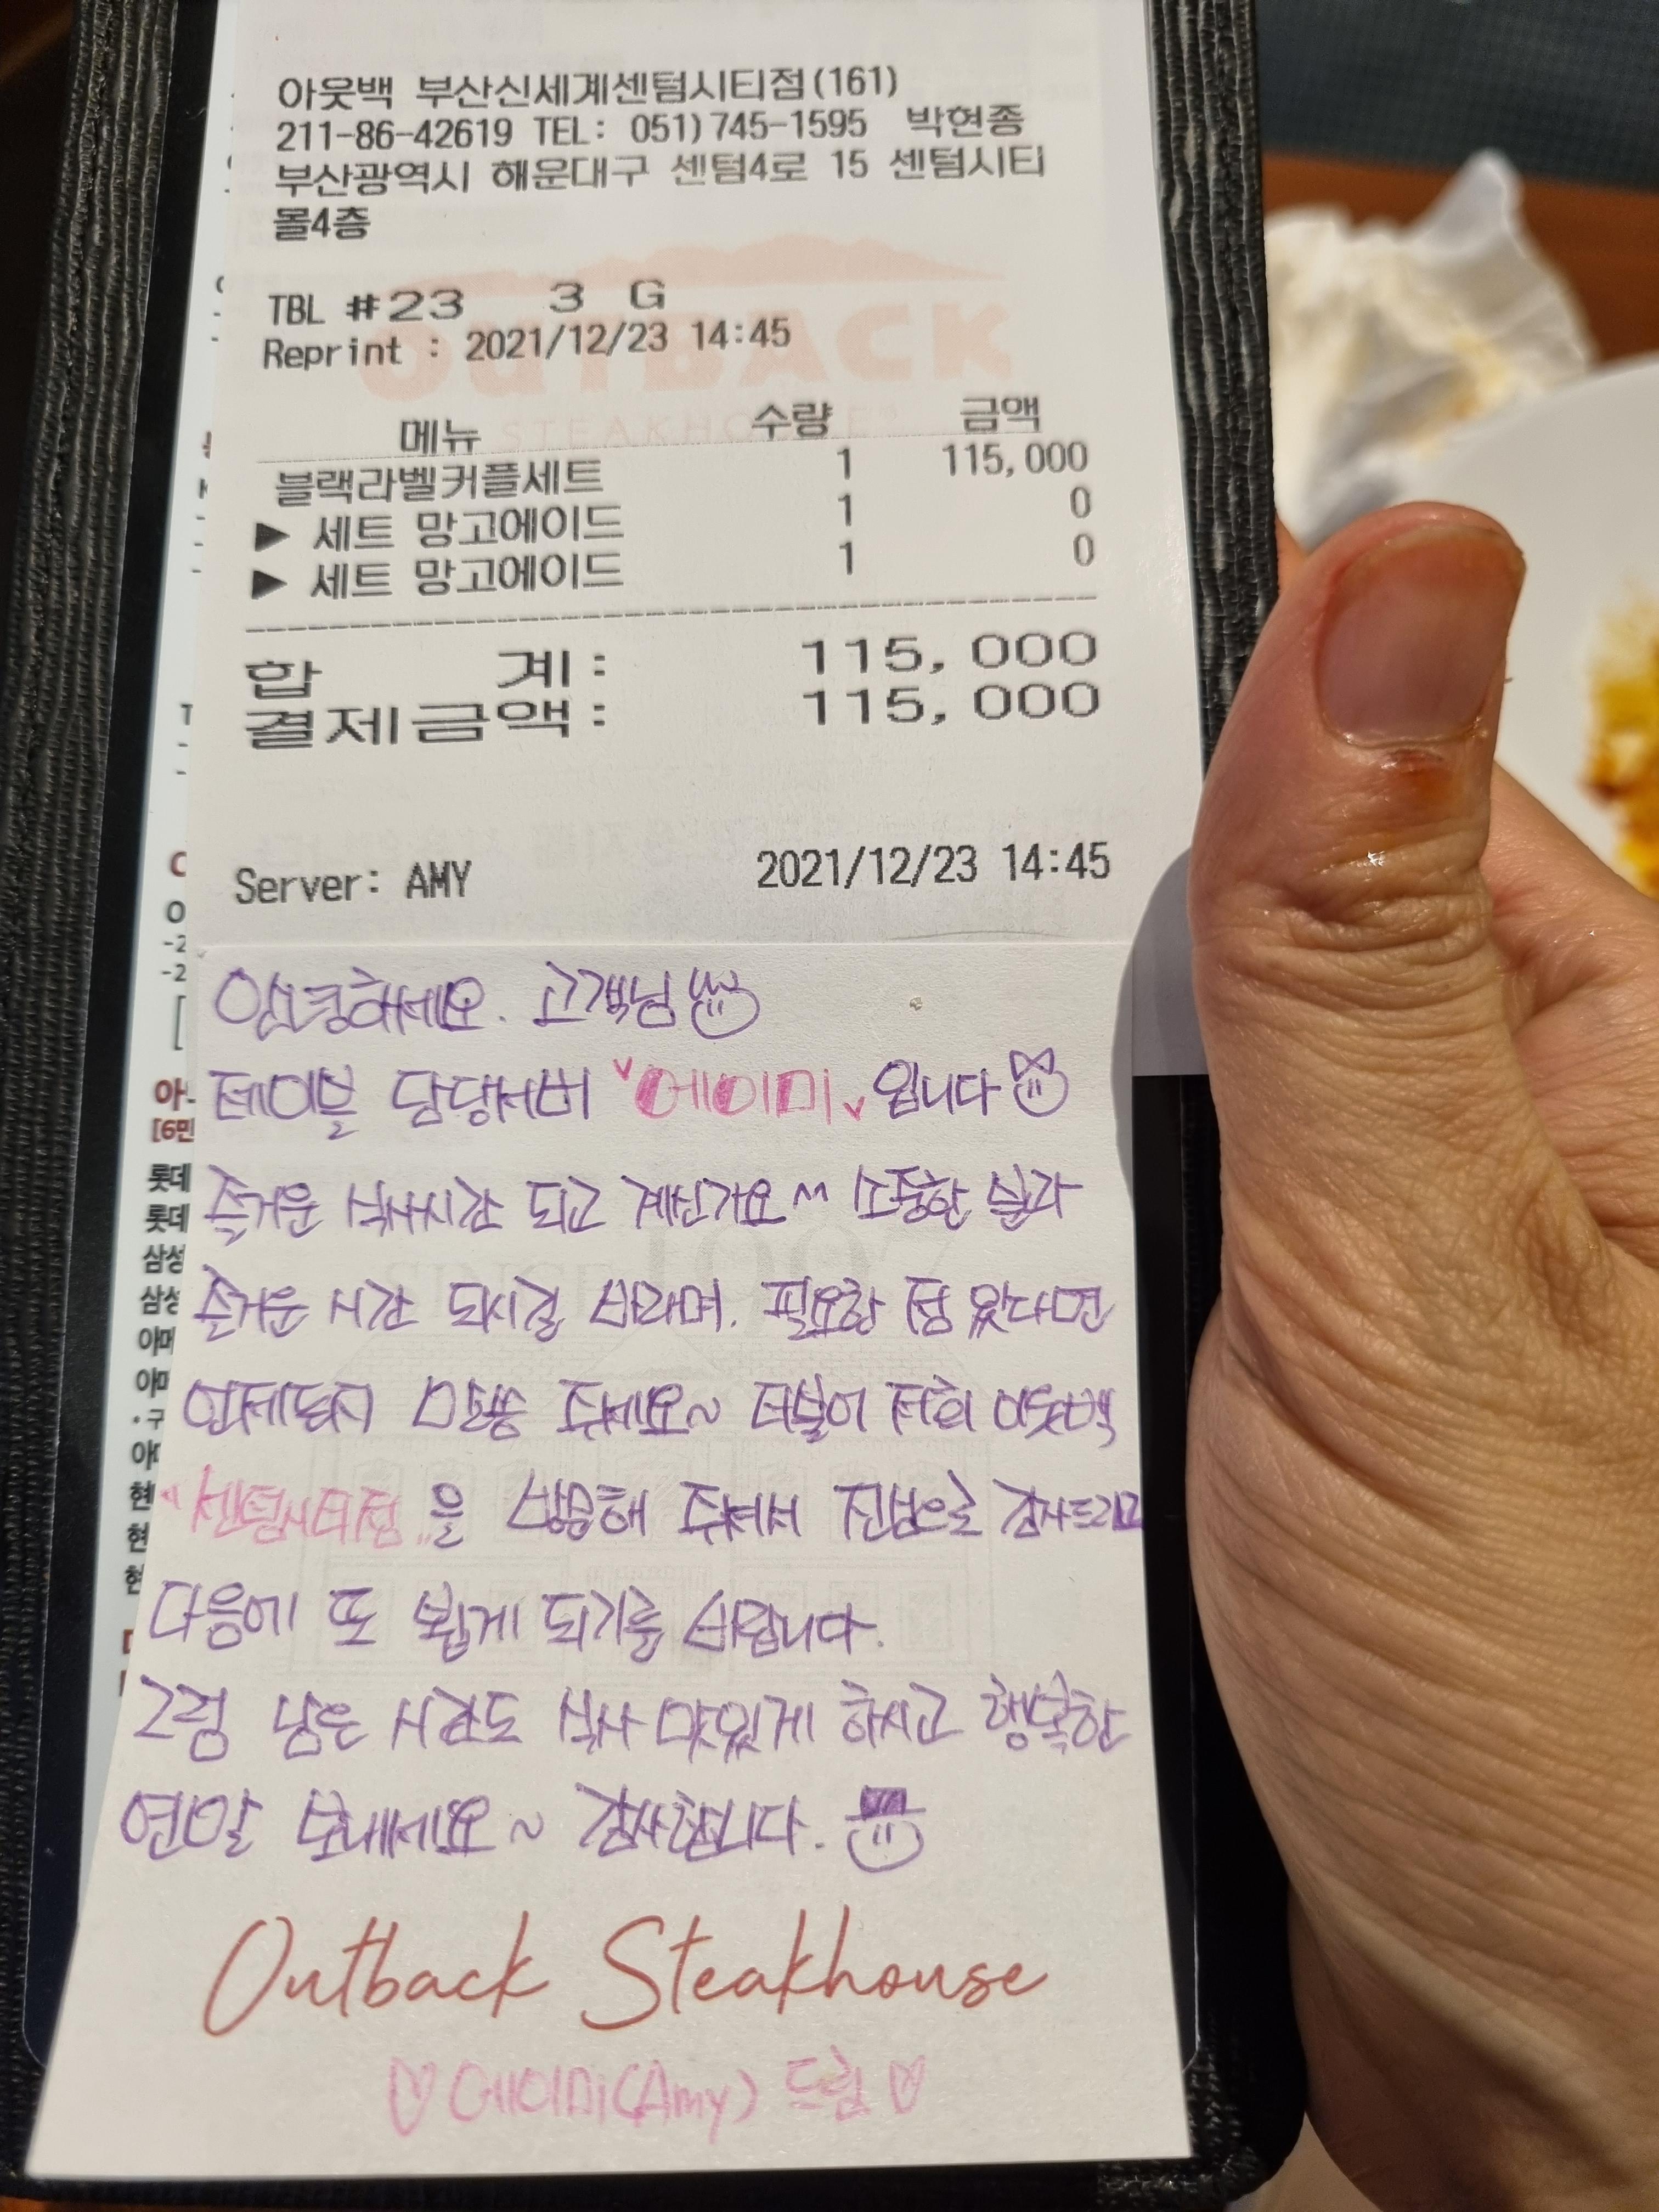 아웃백 부산신세계센텀시티점(161)
211-86-42619 TEL: 051)745-1595 박현종
부산광역시 해운대구 센텀4로 15 센텀시티
몰4층
OUTBACK
STEAKHOUSE
TBL #23 3 G
Reprint : 2021/12/23 14:45
메뉴 수량 금액
블랙라벨커플세트 1 115,000
▶ 세트 망고에이드 1 0
▶ 세트 망고에이드 1 0
합 계: 115,000
결제금액: 115,000
Server: AMY 2021/12/23 14:45
안녕하세요. 고객님
테이블 담당서버 ♥에이미♥ 입니다
즐거운 식사시간 되고 계신가요^^ 소중한 분과
즐거운 시간 되시길 바라며. 필요한 점 있다면
언제든지 말씀 주세요~ 더불어 저희 아웃백
"센텀시티점"을 방문해 주셔서 진심으로 감사드리고
다음에 또 뵙게 되기를 바랍니다.
그럼 남은 시간도 식사 맛있게 하시고 행복한
연말 보내세요~ 감사합니다.
Outback Steakhouse
♡에이미(Amy) 드림♡
[6만
롯데
롯데
삼성
삼성
현
현
현